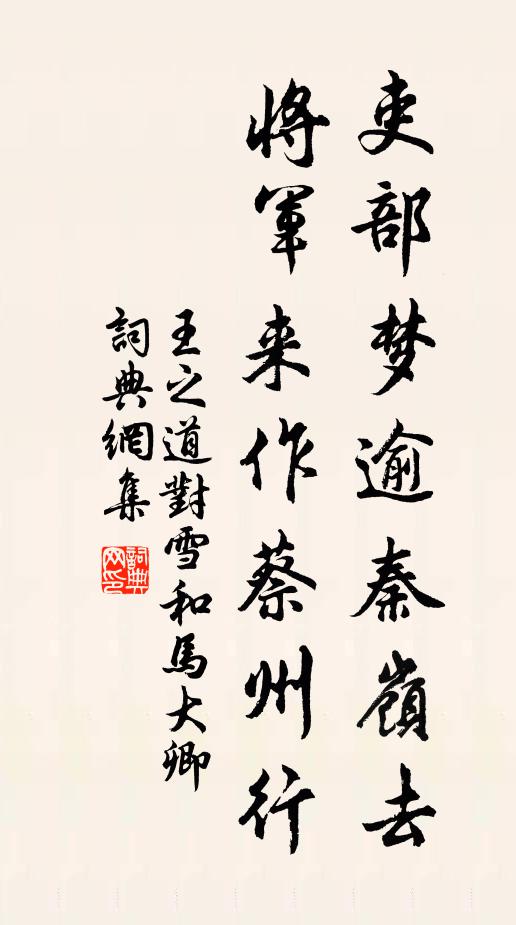 吏部梦逾秦嶺去
將軍来作蔡州行
王之道對雪和馬大卿
詞典網集
詞典网印